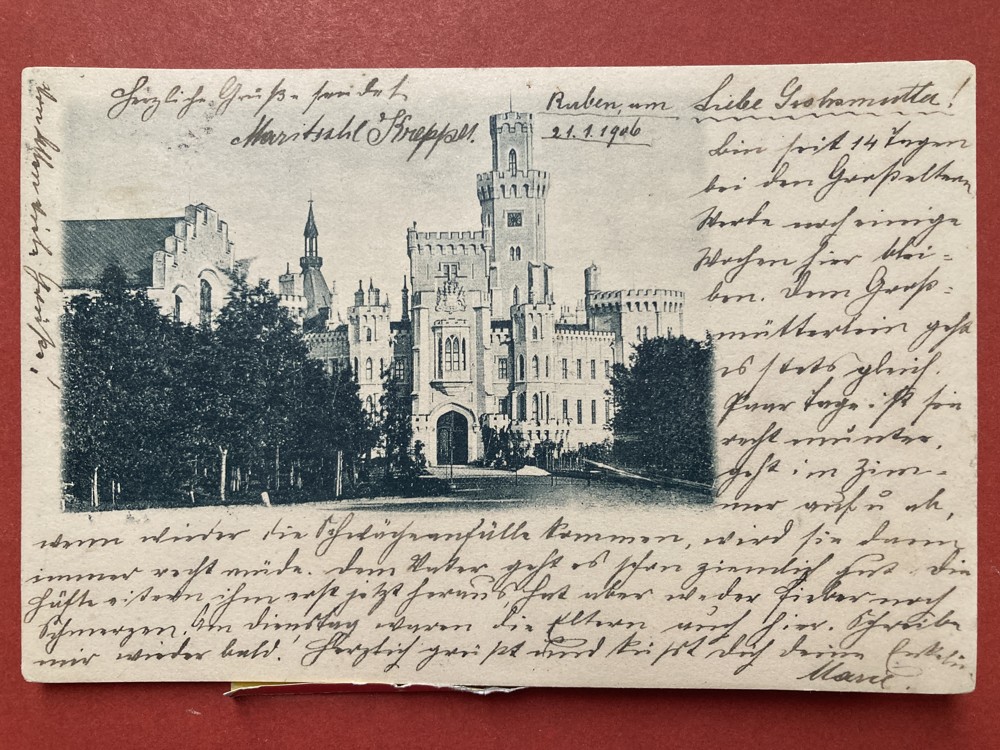 Herzliche Grüße sendet
Ruben, am
21.1.1906
Liebe Großmutter!
Bin seit 14 Tagen
bei den Großeltern
Werde noch einige
Wochen hier blei=
ben. Dem Groß=
mütterlein geht
es stets gleich.
Paar Tage ist sie
recht munter,
geht im Zim=
mer auf u ab,
wenn wieder die Schwächeanfälle kommen, wird sie dann
immer recht müde. Dem Vater geht es schon ziemlich gut. Die
eitern ihm erst jetzt heraus, hat aber weder Fieber noch
Schmerzen. Am Dienstag waren die Eltern auch hier. Schreibe
mir wieder bald. Herzlich grüßt und küsst Dich deine Enkelin
Marie.